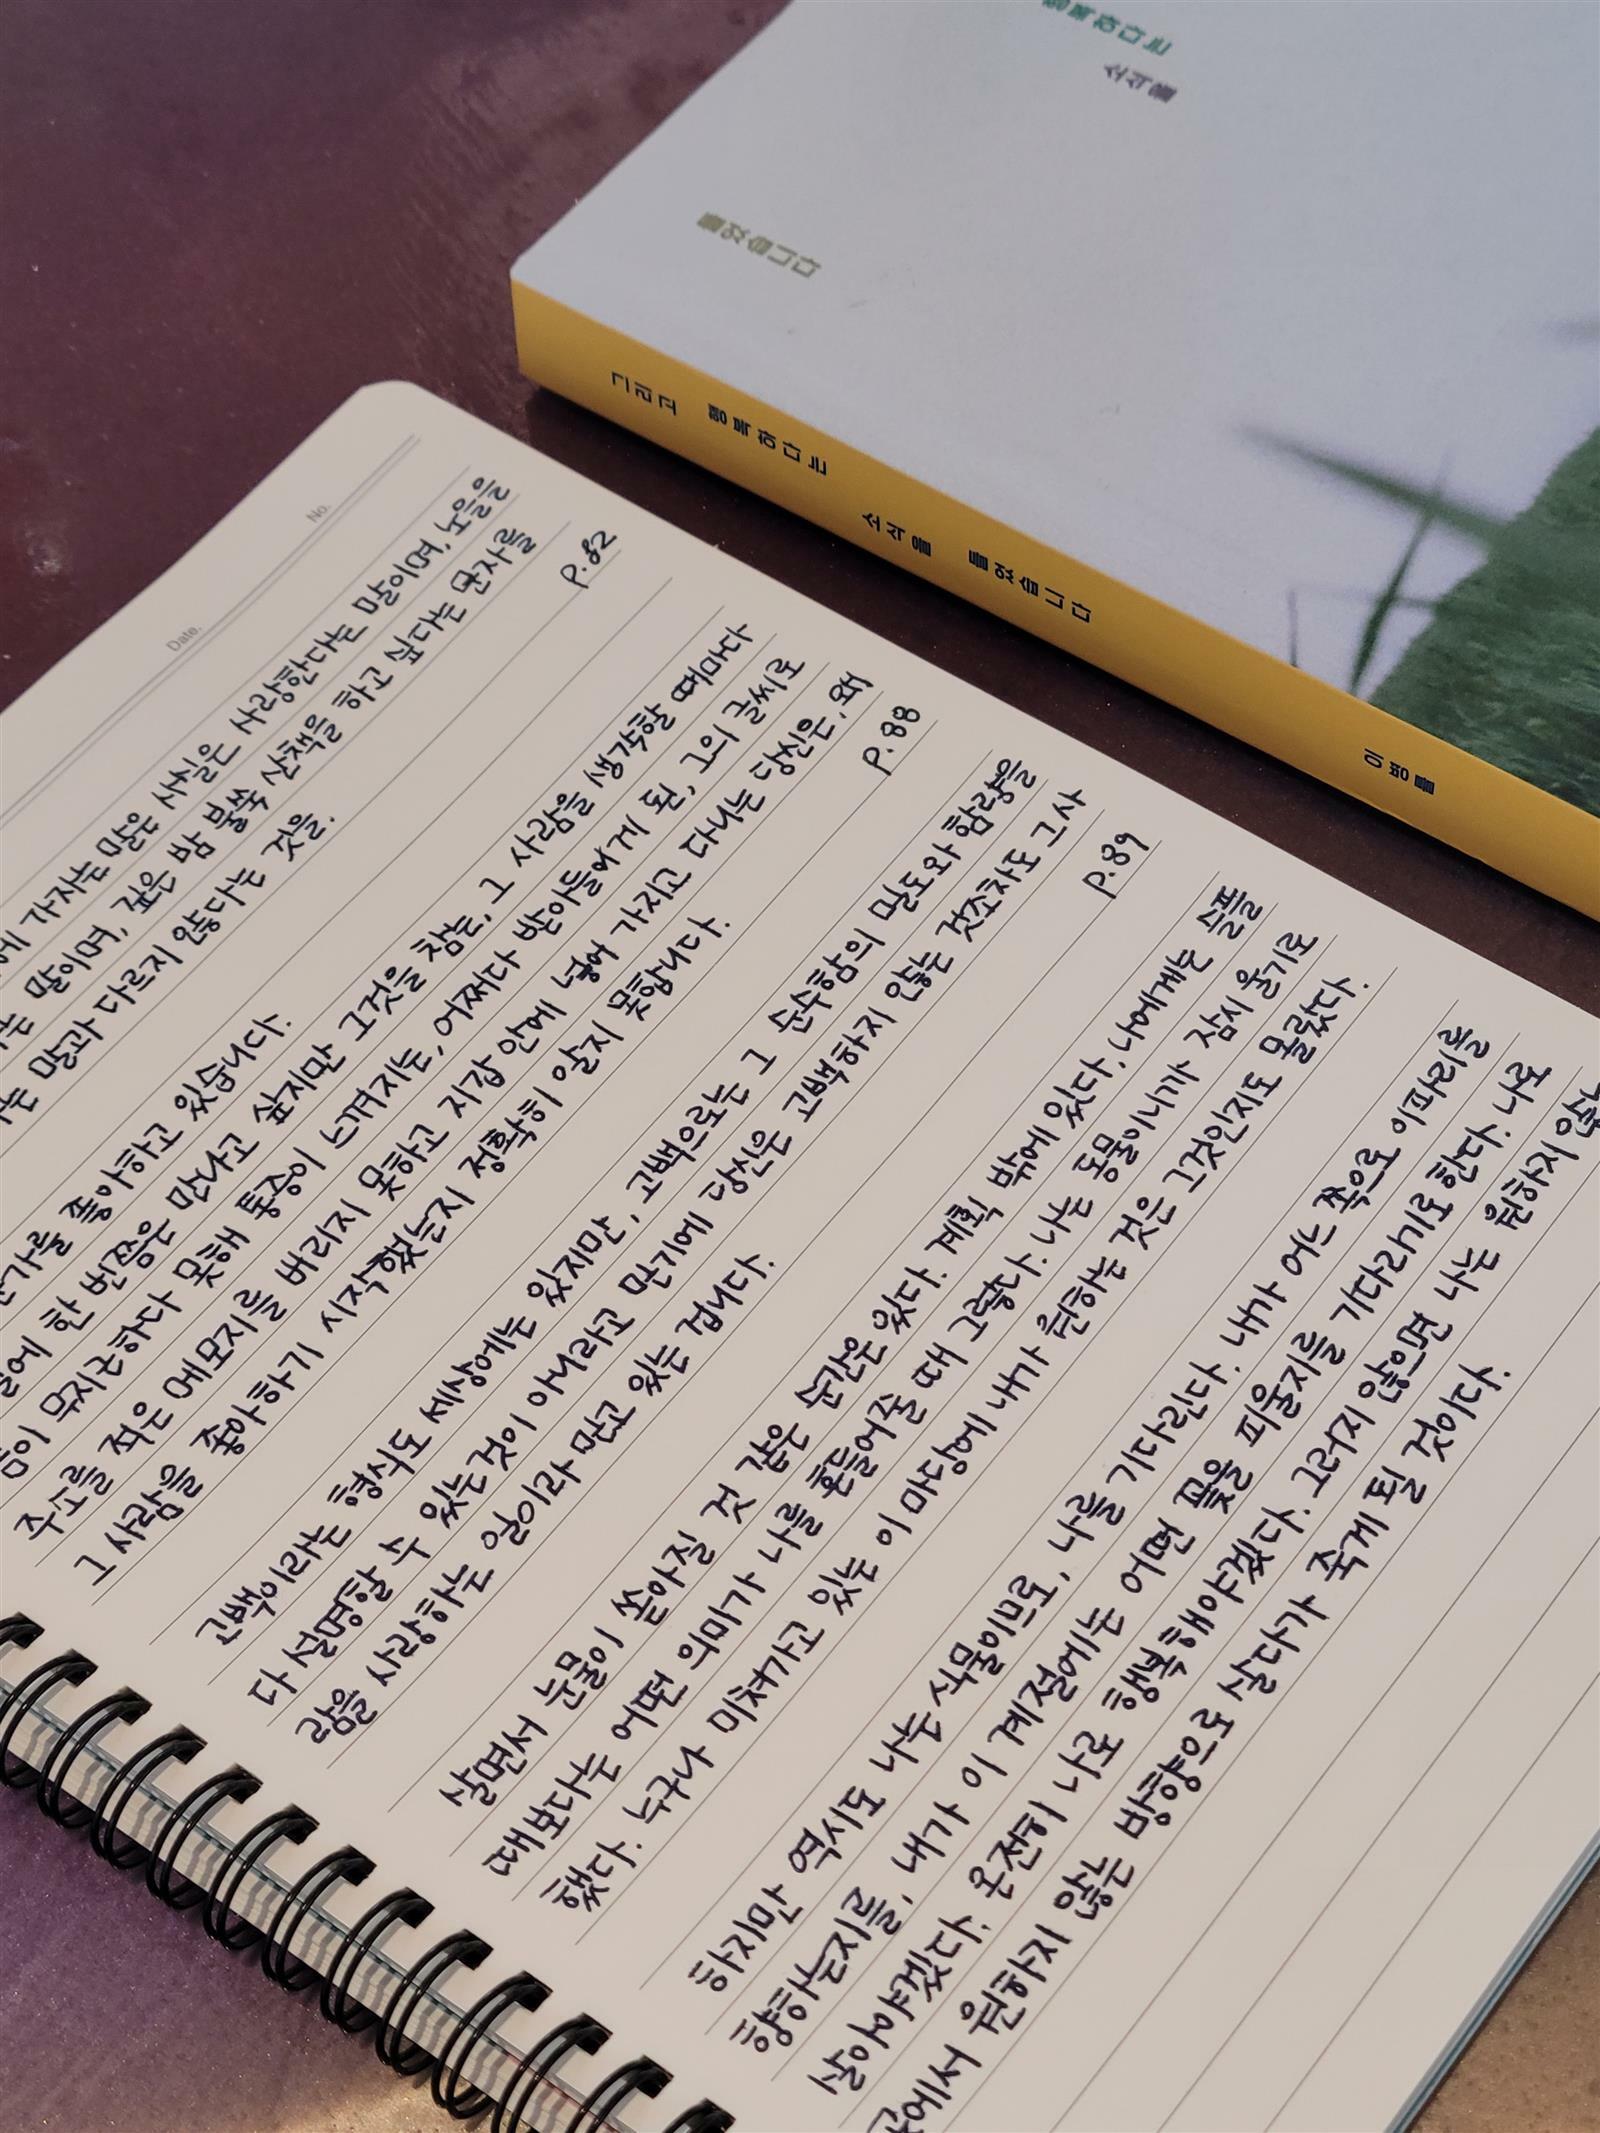 행복하다는
소식을
들었습니다
그리고 행복하다는 소식을 들었습니다
이병률
No.
Date.
가자는 말은 사실은 사랑한다는 말이며, 노을을
말이며, 깊은 밤 불쑥 산책을 하고 싶다는 문자를
말과 다르지 않다는 것을.
P.82
좋아하고 있습니다.
한 번쯤은 만나고 싶지만 그것을 참는, 그 사람을 생각할 때마다
무지근하다 못해 통증이 느껴지는, 어쩌다 받아들에게 된, 그의 글씨로
주소를 적은 메모지를 버리지 못하고 지갑 안에 넣어 가지고 다니는 당신은, 왜
그 사람을 좋아하기 시작했는지 정확히 알지 못합니다.
P.88
고백이라는 형식도 세상에는 있지만, 고백으로는 그 순수함의 밀도와 함량을
다 설명할 수 있는 것이 아니라고 믿기에 당신은 고백하지 않는 것조차도 그 사
람을 사랑하는 일이라 믿고 있는 겁니다.
P.89
살면서 눈물이 쏟아질 것 같은 순간은 있다. 계획 밖에 있다. 나에게는 슬플
때보다는 어떤 의미가 나를 흔들어줄 때 그렇다. 나는 동물이니까 잠시 울기로
했다. 누구나 미쳐가고 있는 이 마당에 내가 원하는 것은 그것인지도 몰랐다.
하지만 역시도 나는 식물이므로, 나를 기다린다. 내가 어느 쪽으로 이파리를
향하는지를, 내가 이 계절에는 어떤 꽃을 피울지를 기다리기로 한다. 나로
살아야겠다. 온전히 나로 행복해야겠다. 그러지 않으면 나는 원하지 않는
원하지 않는 방향으로 살다가 죽게 될 것이다.